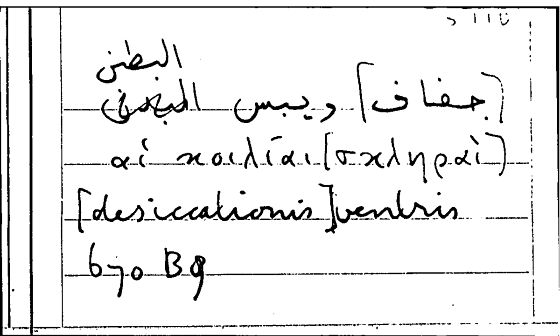 البطن
[جفاف] ويبس البطن
αἱ κοιλίαι [σκληραὶ]
[desiccationis] ventris
670 B9